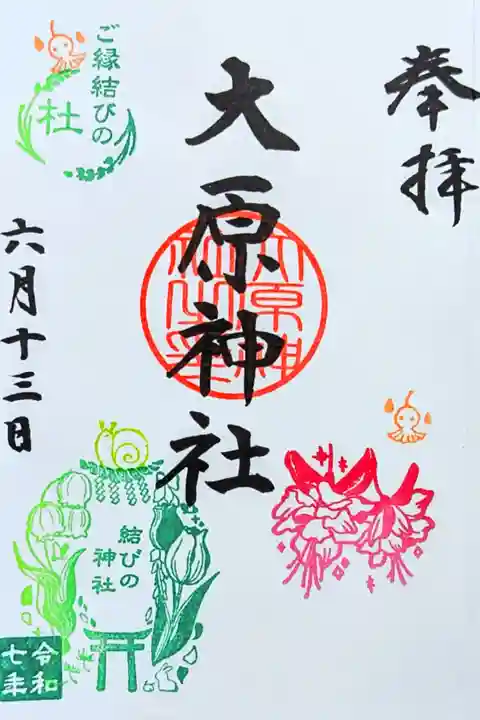 奉拝
大原神社
大原神社之印
ご縁結びの
杜
六月十三日
結びの
神社
令和
七年